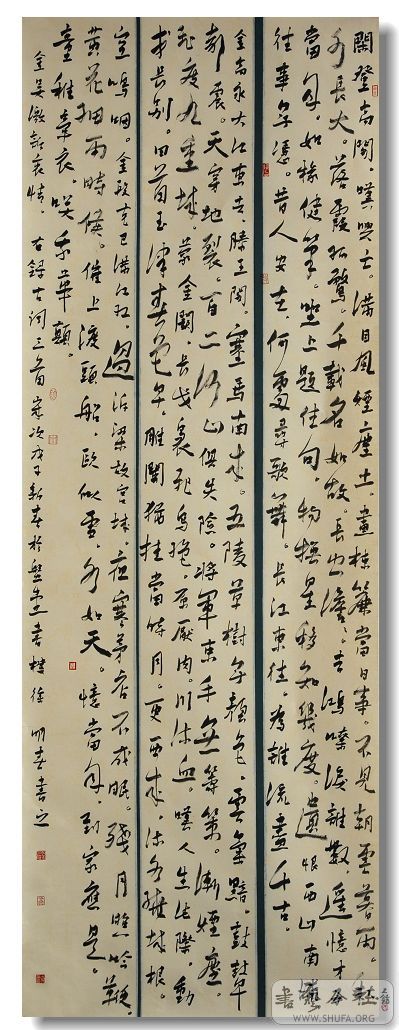 閑登高閣。嘆興亡。滿目風煙塵土。畫棟簾當日事。不見朝雲暮雨。
水長天。落霞孤鶩。千載名如故。長空澹澹。去鴻嘹唳誰數。遙憶才子
當年。如椽健筆。坐上題佳句。物換星移知幾度。遺恨西山南
往事無憑。昔人安在。何處尋歌舞。長江東注。為誰流盡千古。
金高永大江東去滕王閣。塞馬南來。五陵草樹無顏色。雲氣黯。鼓鼙
聲震。天穿地裂。百二河山俱失險。將軍束手無籌策。漸煙塵。
飛度九重城。蒙金闕。長戈裊。飛鳥絕。原厭肉。川流血。嘆人生此際。動
成長別。回首玉津春色早。雕闌猶掛當時月。更西來。流水繞城根。
空嗚咽。金段克己滿江紅。過汴梁故宮城。夜寒茅店不成眠。殘月照吟鞭。
黃花細雨時候。催上渡頭船。鷗似雪。水如天。憶當年。到家應是。
童稚牽衣。笑我華顛。
金吳激訴衷情。右錄古詞三首歲次戊子新春於書樓徐明春書之
WWW.SHUFA.ORG